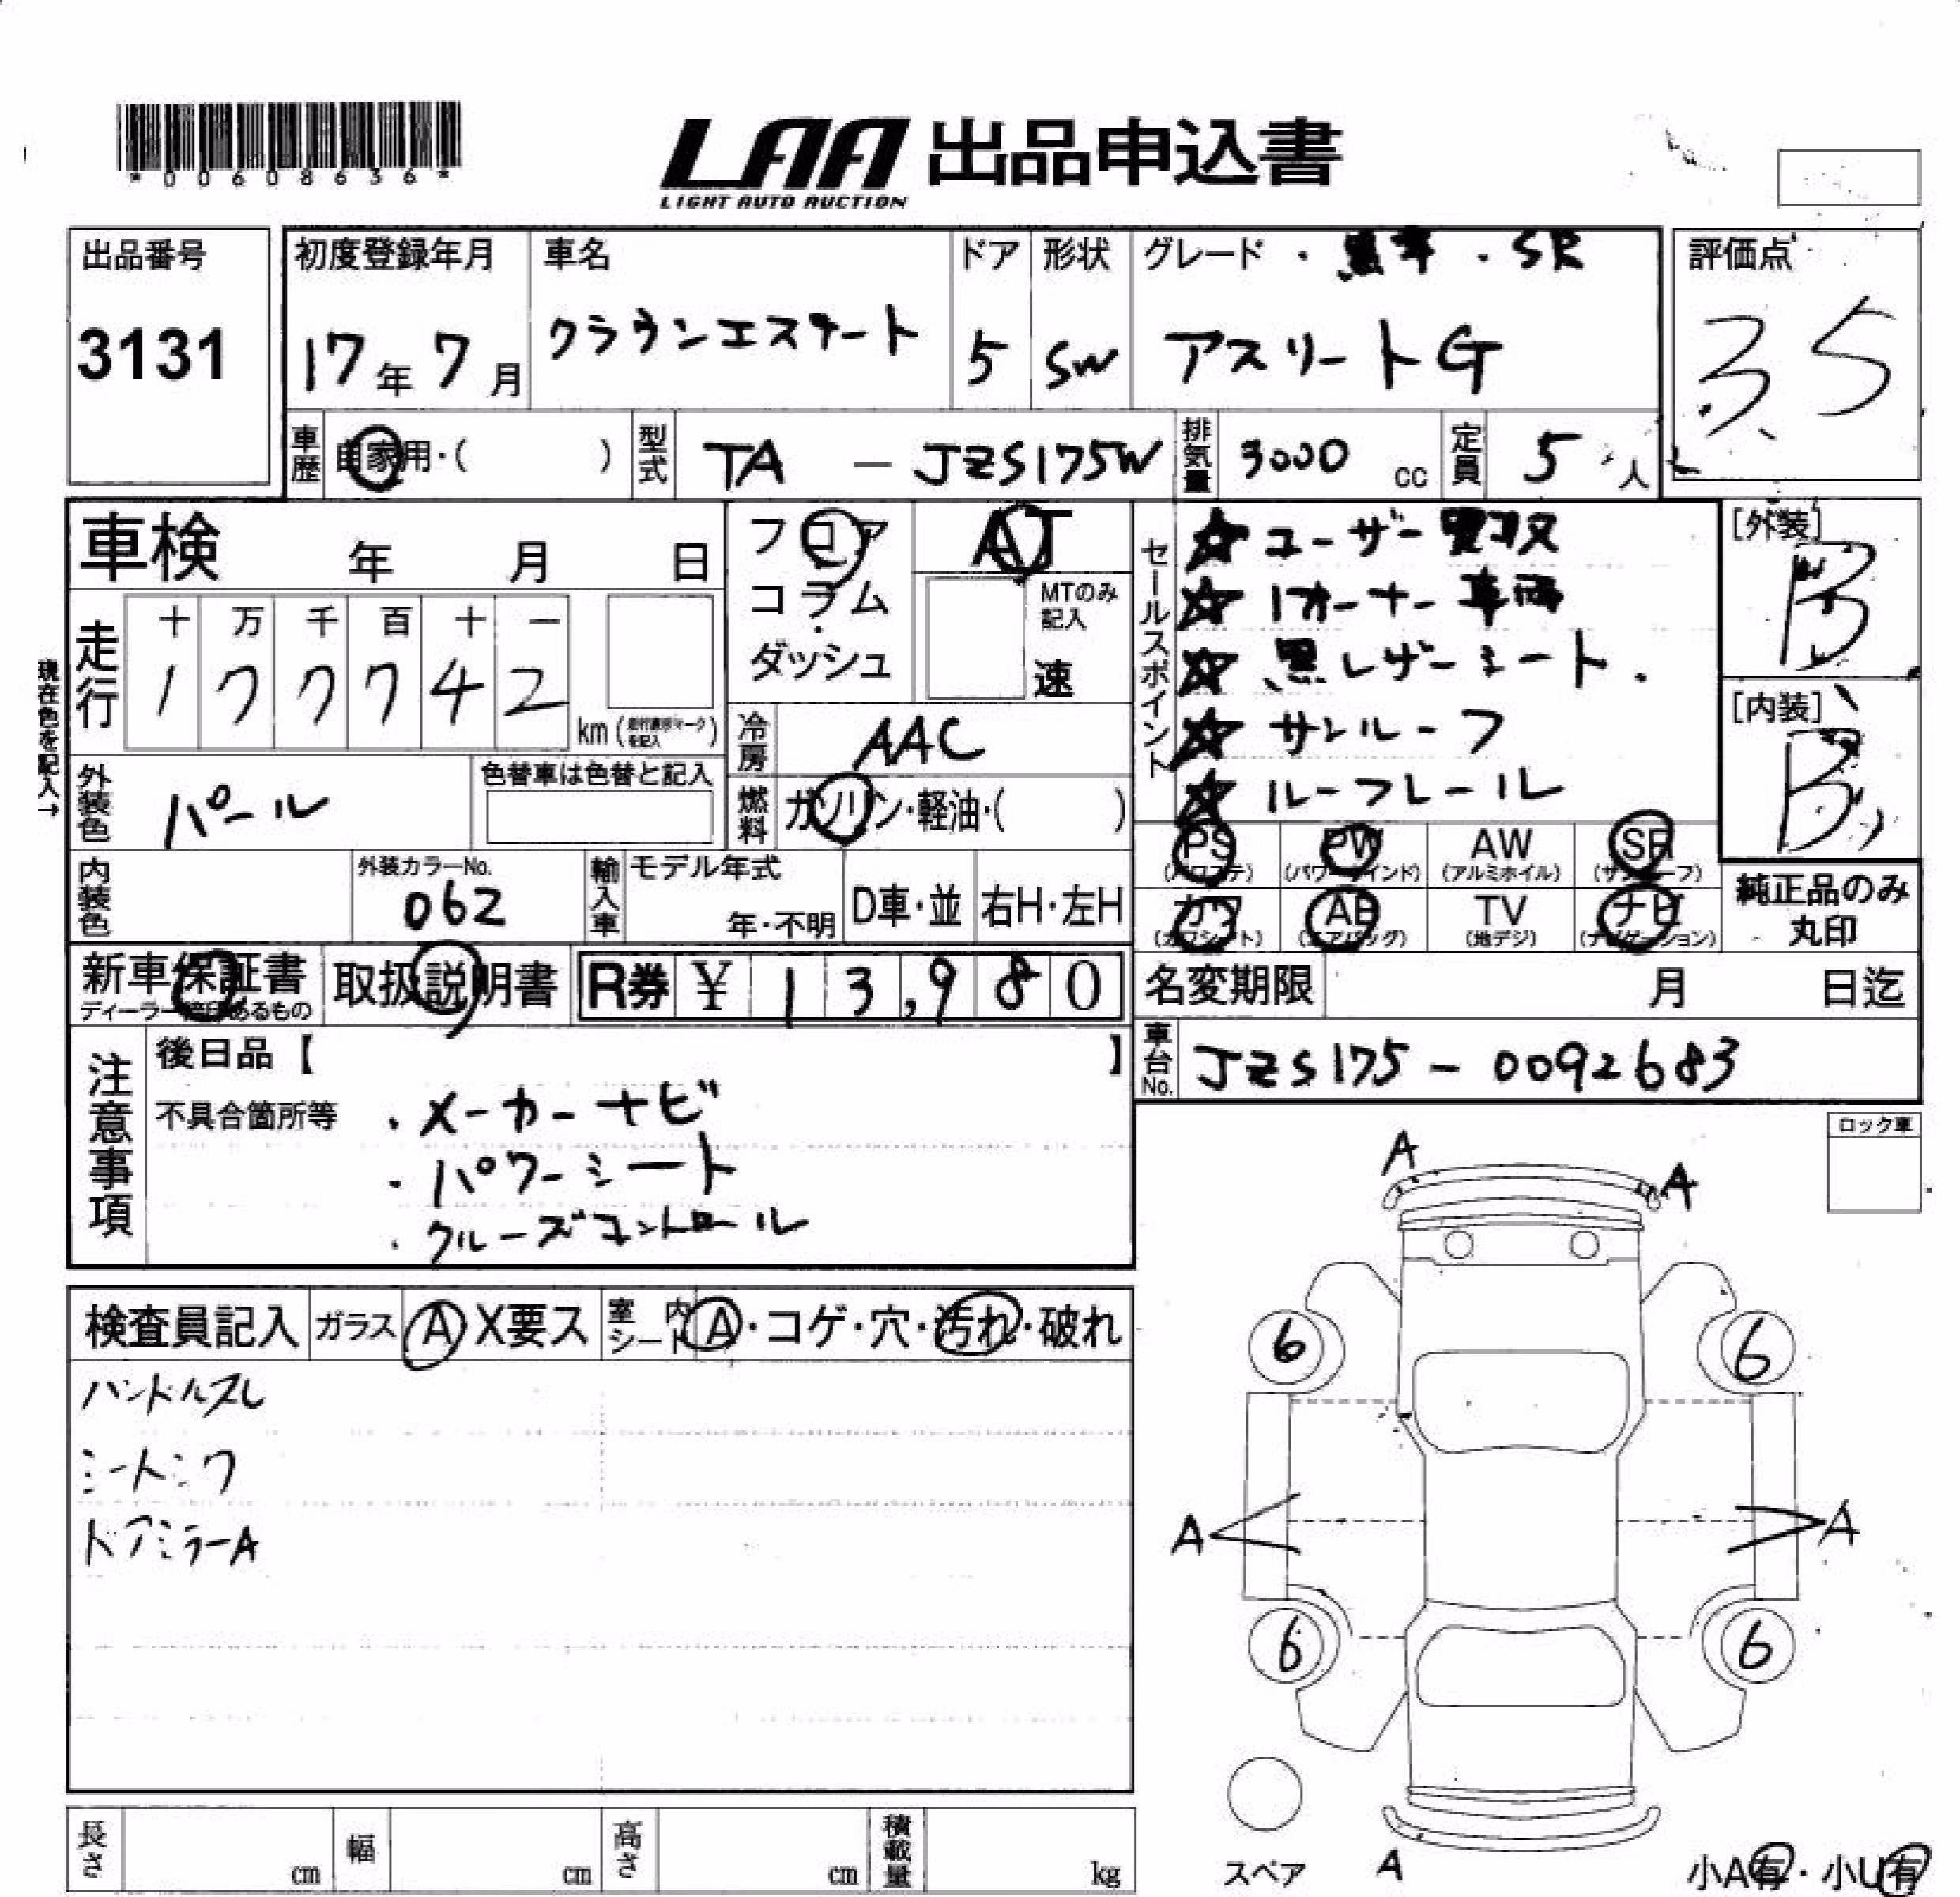 *00608636*
LAA 出品申込書
LIGHT AUTO AUCTION
出品番号
3131
初度登録年月
17年7月
車名
クラウンエステート
ドア
5
形状
SW
グレード ・黒革・SR
アスリートG
評価点
3.5
車歴 自家用・( )
型式 TA - JZS175W
排気量 3000 cc
定員 5人
車検 年 月 日
フロア
コラム
・
ダッシュ
AT
MTのみ記入
速
走行
十 万 千 百 十 一
1 7 7 7 4 2
km
現在色を記入→
外装色 パール
色替車は色替と記入
冷房 AAC
燃料 ガソリン・軽油・( )
セールスポイント
☆ ユーザー買取
☆ 1オーナー車両
☆ 黒レザーシート.
☆ サンルーフ
☆ ルーフレール
[外装]
B
[内装]
B
PS (パワステ)
PW (パワーウインド)
AW (アルミホイル)
SR (サンルーフ)
カワ (カワシート)
AB (エアバッグ)
TV (地デジ)
ナビ (ナビゲーション)
純正品のみ
丸印
内装色
外装カラーNo.
062
輸入車
モデル年式
年・不明
D車・並
右H・左H
新車保証書
取扱説明書
R券 ¥ 13,980
名変期限 月 日迄
車台No. JZS175-0092683
注意事項
後日品【 】
不具合箇所等
・メーカーナビ
・パワーシート
・クルーズコントロール
ロック車
検査員記入
ガラス A X要ス
室内シート A・コゲ・穴・汚れ・破れ
ハンドルスレ
シートシワ
ドアミラーA
A
A
6
6
A
A
6
6
スペア
A
小A有・小U有
長さ cm
幅 cm
高さ cm
積載量 kg